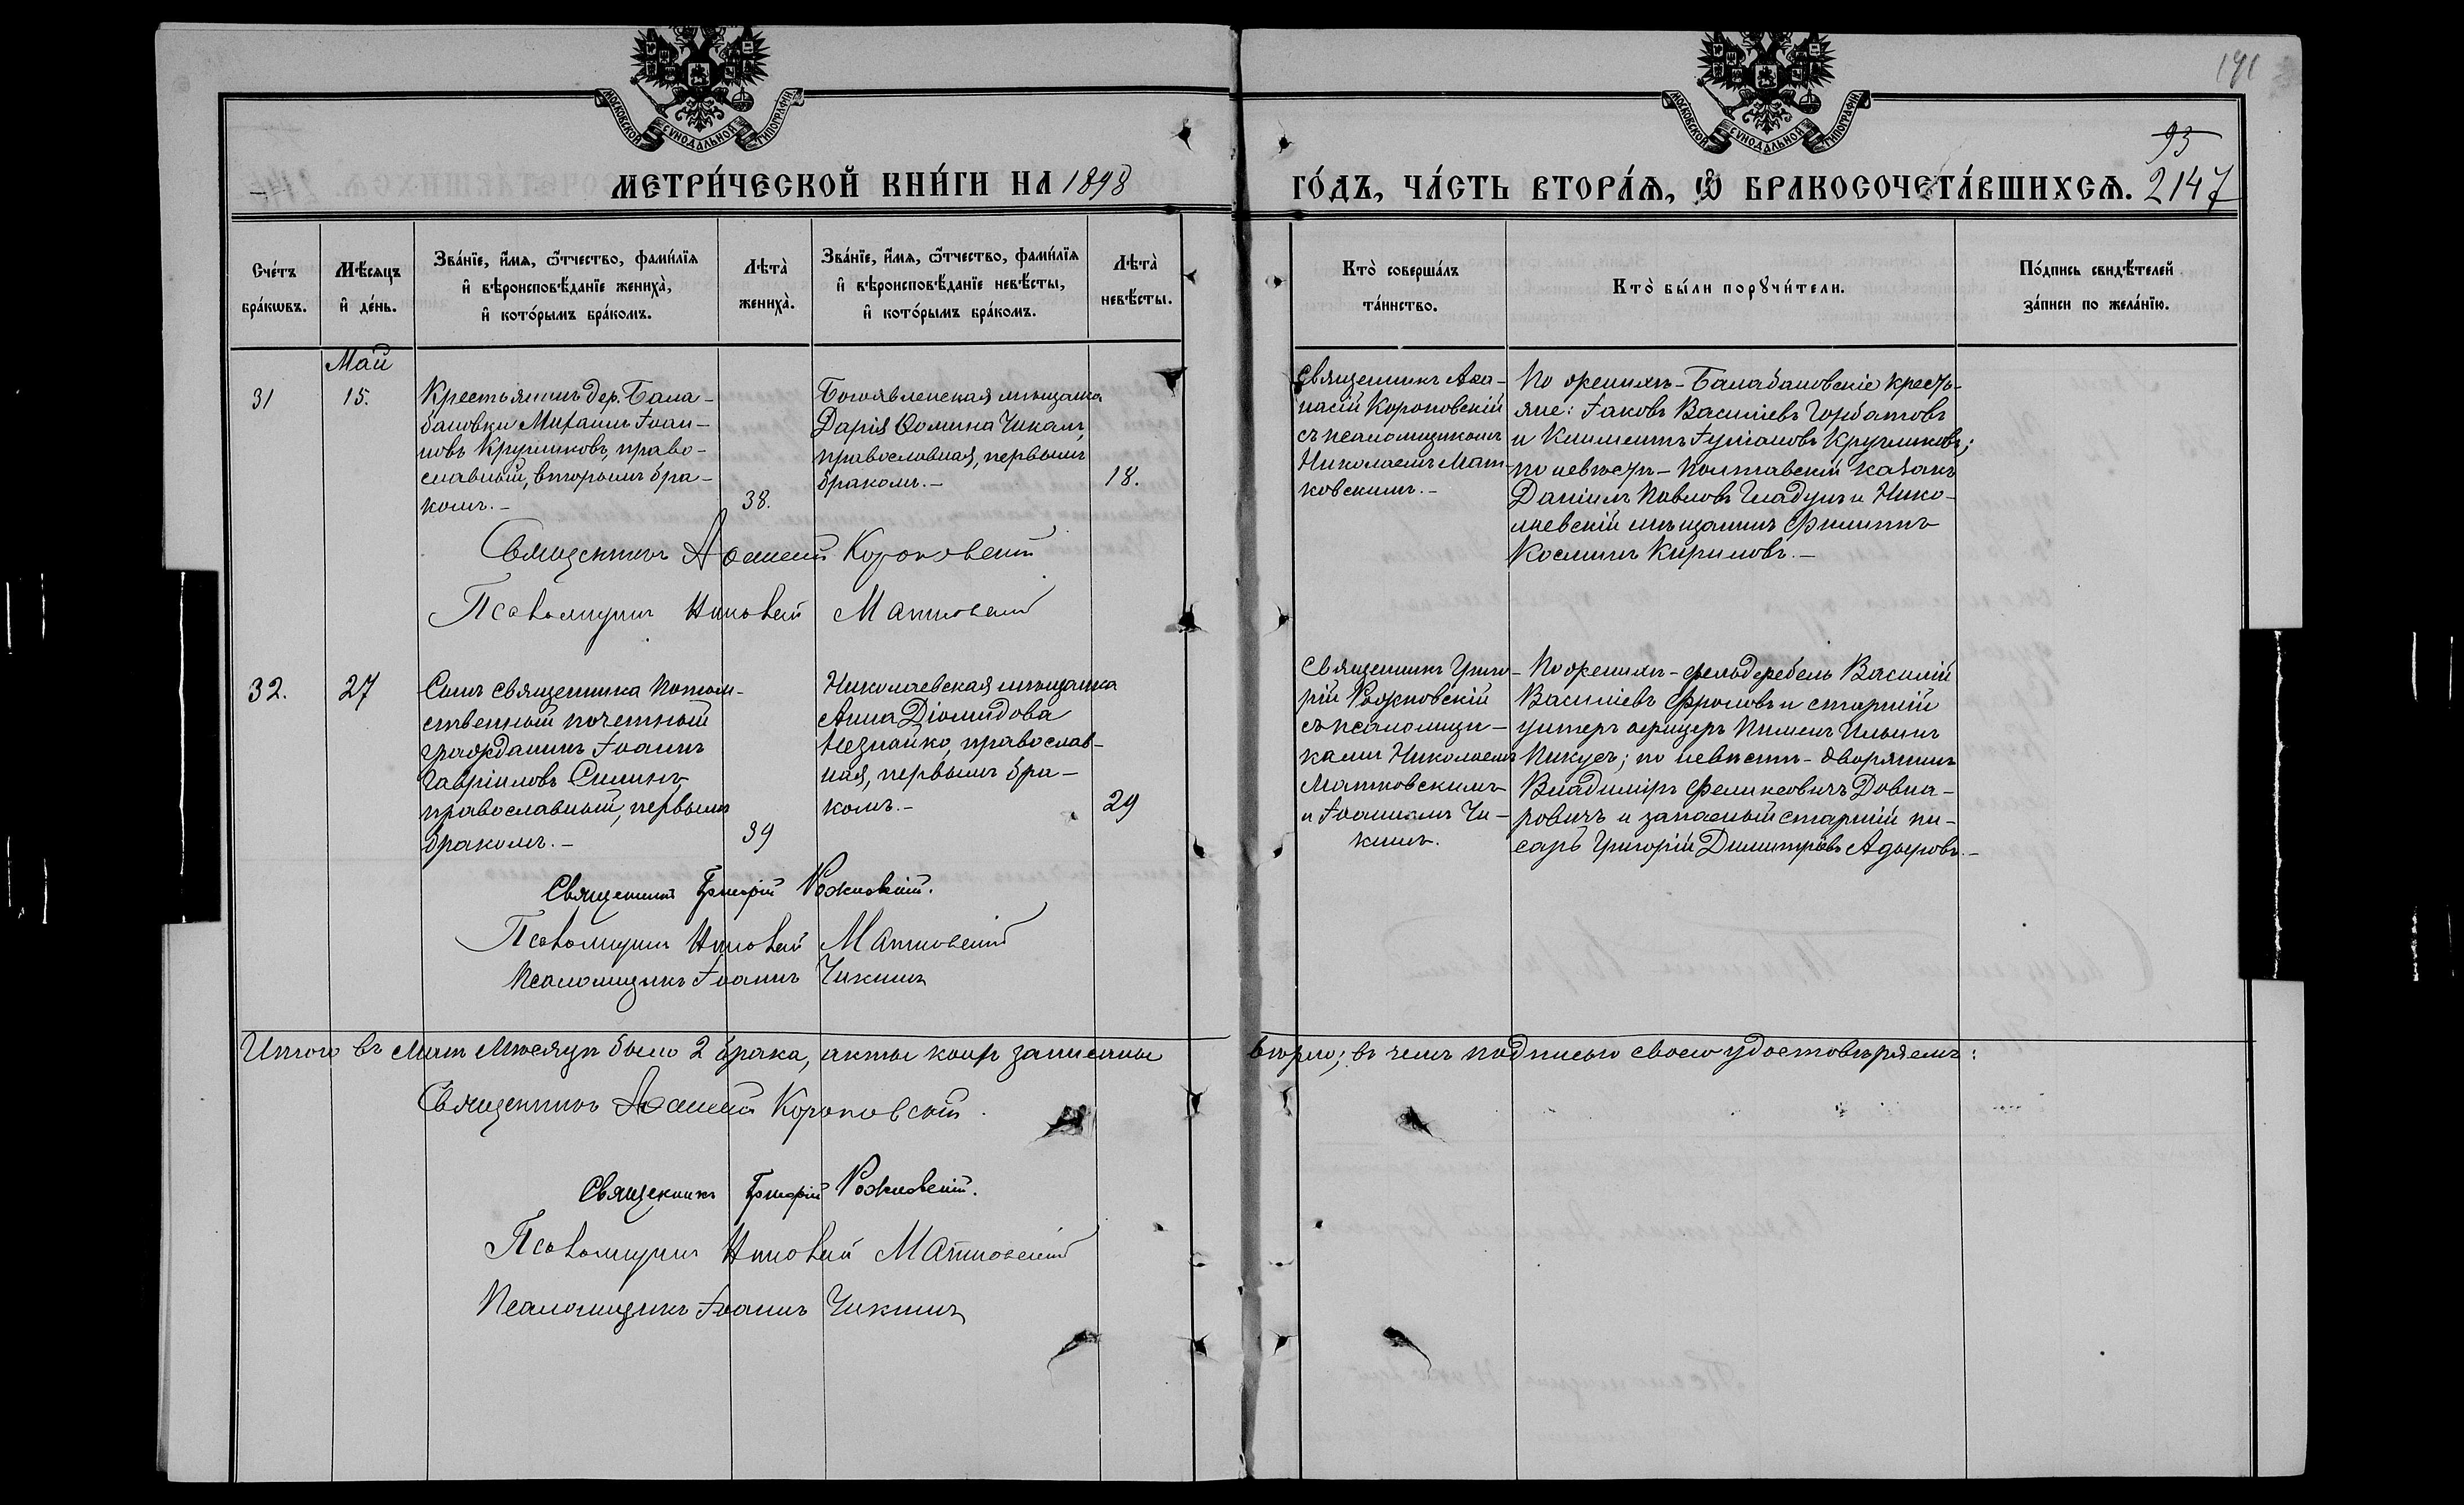 191
МОСКОВСКОЙ СѴНОДАЛЬНОЙ ТИПОГРАФІИ
МОСКОВСКОЙ СѴНОДАЛЬНОЙ ТИПОГРАФІИ
93
МЕТРИ́ЧЕСКОЙ КНИ́ГИ НА 1898
ГО́ДЪ, ЧА́СТЬ ВТОРА́Я, Ѽ БРАКОСОЧЕТА́ВШИХСѦ. 2147
Сче́тъ бра́кѡвъ.
Мѣ́сяцъ и҆ де́нь.
Зва́нїе, и҆́мя, ѻ҆́тчество, фами́лїя
и҆ вѣроисповѣ́данїе жениха̀,
и҆ кото́рымъ бра́комъ.
Лѣта̀ жениха̀.
Зва́нїе, и҆́мя, ѻ҆́тчество, фами́лїя
и҆ вѣроисповѣ́данїе невѣ́сты,
и҆ кото́рымъ бра́комъ.
Лѣта̀ невѣ́сты.
Кто̀ соверша́лъ
та́инство.
Кто̀ бы́ли порꙋчи́тели.
По́дпись свидѣ́телей
за́писи по жела́нїю.
Май
31
15.
Крестьянинъ дер. Бала-
бановки Михаилъ Іоан-
новъ Кругликовъ, право-
славный, вторымъ бра-
комъ.-
38.
Богоявленская мѣщанка
Дарія Ѳомина Чикалъ,
православная, первымъ
бракомъ.-
18.
Священникъ Аѳа-
насій Короповскій
съ псаломщикомъ
Николаемъ Мат-
ковскимъ.-
По женихѣ-Балабановскіе кресть-
яне: Іаковъ Василіевъ Горбатовъ
и Климентъ Іуліановъ Кругликовъ;
по невѣстѣ-Полтавскій казакъ
Даніилъ Павловъ Гладунъ и Нико-
лаевскій мѣщанинъ Филиппъ
Космовъ Кириловъ.-
Священникъ Аѳанасій Короповскій
Псаломщикъ Николай Матковскій
32.
27
Сынъ священника потом-
ственный почетный
гражданинъ Іоаннъ
Гавріиловъ Силинъ,
православный, первымъ
бракомъ.-
39
Николаевская мѣщанка
Анна Діомидова
Незнайко, православ-
ная, первымъ бра-
комъ.-
29
Священникъ Григо-
рій Рожновскій
съ псаломщи-
ками Николаемъ
Матковскимъ
и Іоанномъ Чи-
кинъ.
По женихѣ-фельдфебель Василій
Василіевъ Фроловъ и старшій
унтеръ офицеръ Пименъ Ильинъ
Пикусъ; по невѣстѣ-дворянинъ
Владиміръ Феликсовичъ Довна-
ровичъ и запасный старшій пи-
сарь Григорій Димитріевъ
Священникъ Григорій Рожновскій.
Псаломщикъ Николай Матковскій
Псаломщикъ Іоаннъ Чикинъ
Итого въ Маѣ мѣсяцѣ было 2 брака, акты коихъ записаны вѣрно; въ чемъ подписью своею удостовѣряемъ:
Священникъ Аѳанасій Короповскій.
Священникъ Григорій Рожновскій.
Псаломщикъ Николай Матковскій
Псаломщикъ Іоаннъ Чикинъ